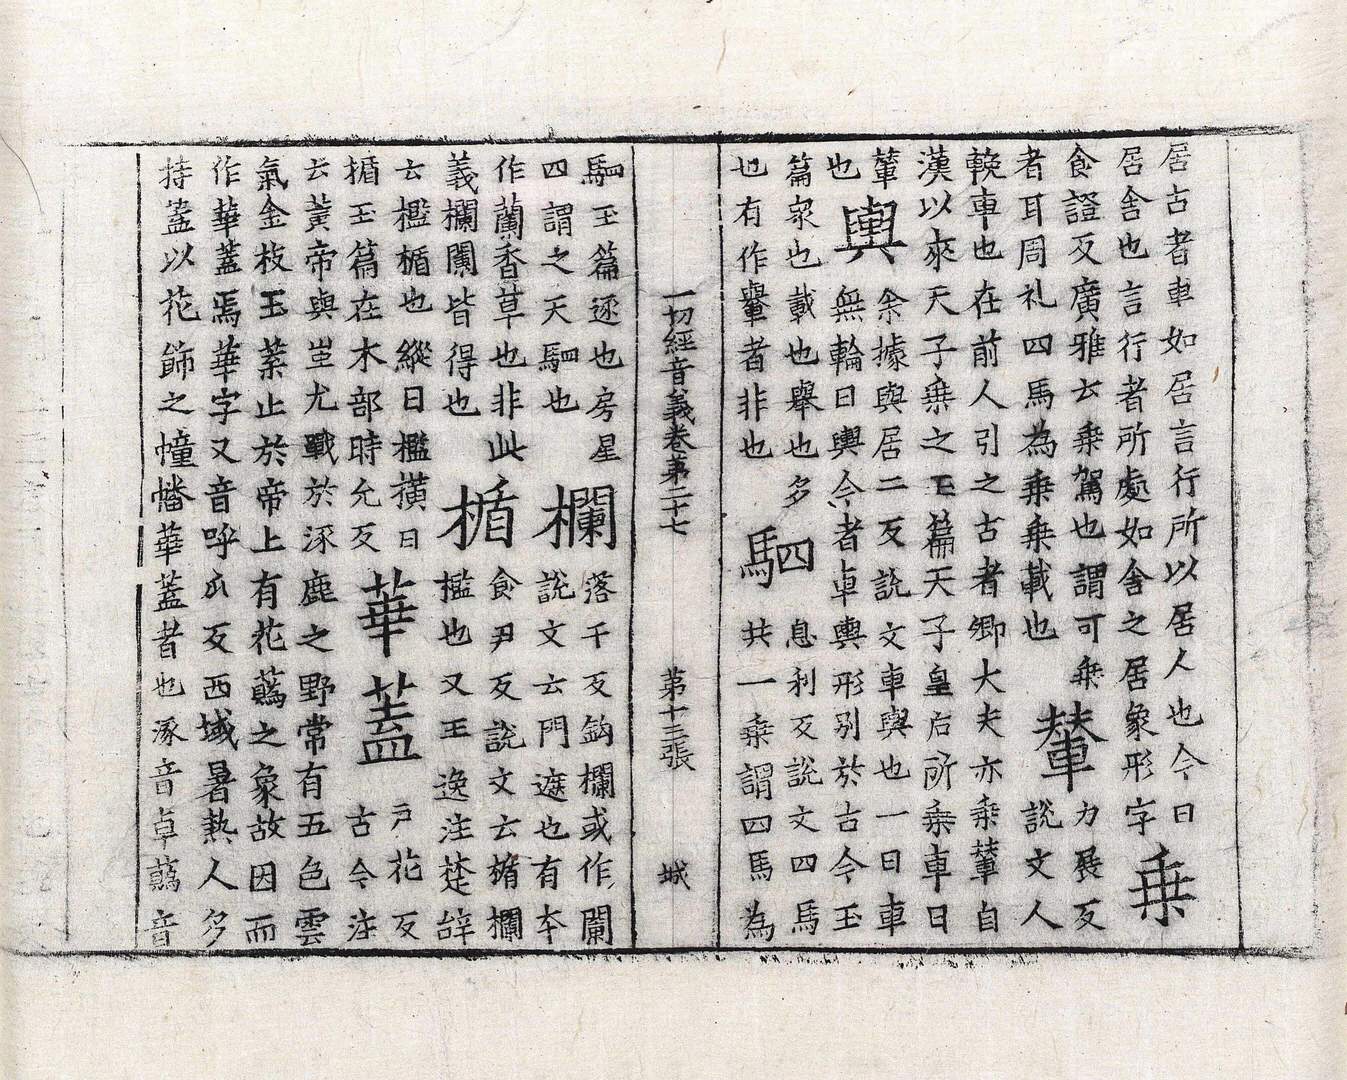 居古者車如居言行所以居人也今曰
居舍也言行者所處如舍之居象形字
乗
食證反廣雅云乗駕也謂可乗
者耳周礼四馬為乗乗載也
輦
力展反
說文人
輓車也在前人引之古者卿大夫亦乗輦自
漢以來天子乗之玉篇天子皇后所乗車曰
輦
也
輿
余據與居二反說文車輿也一曰車
無輪曰輿今者卓輿形別於古今玉
篇衆也載也舉也多
也有作轝者非也
駟
息利反說文四馬
共一乗謂四馬為
一切經音義卷第二十七 第十三張 城
駟玉篇逐也房星
四謂之天駟也
欄
落干反鈎欄或作闌
說文云門遮也有本
作蘭香草也非此
義欄闌皆得也
楯
食尹反說文云楯欄
檻也又王逸注楚辞
云檻楯也縱曰檻橫曰
楯玉篇在木部時允反
華蓋
戸花反
古今注
云黃帝與蚩尤戰於涿鹿之野常有五色雲
氣金枝玉葉止於帝上有花蘤之象故因而
作華蓋焉華字又音呼瓜反西域暑熱人多
持蓋以花飾之幢幡華蓋者也涿音卓蘤音